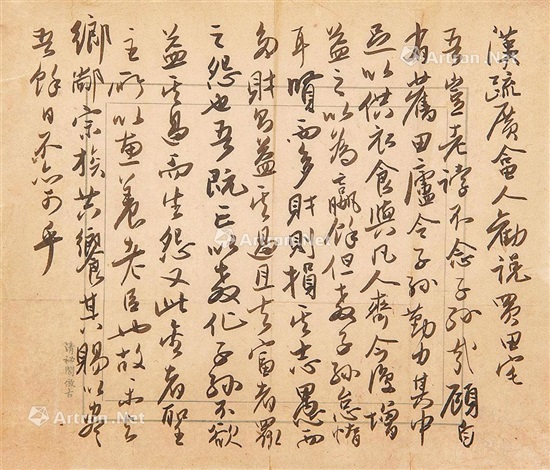 漢疏廣畣人勸說買田宅
吾豈老誖不念子孫哉顧自
有舊田廬令子孫勤力其中
足以供衣食與凡人齊今復增
益之以為贏餘但教子孫怠惰
耳賢而多財則損其志愚而
多財則益其過且夫富者眾
之怨也吾既亡以教化子孫不欲
益其過而生怨又此金者聖
主所以惠養老臣也故樂與
鄉鄰宗族共饗其賜以盡
吾餘日不亦可乎
清祕閣倣古
Artron.Net